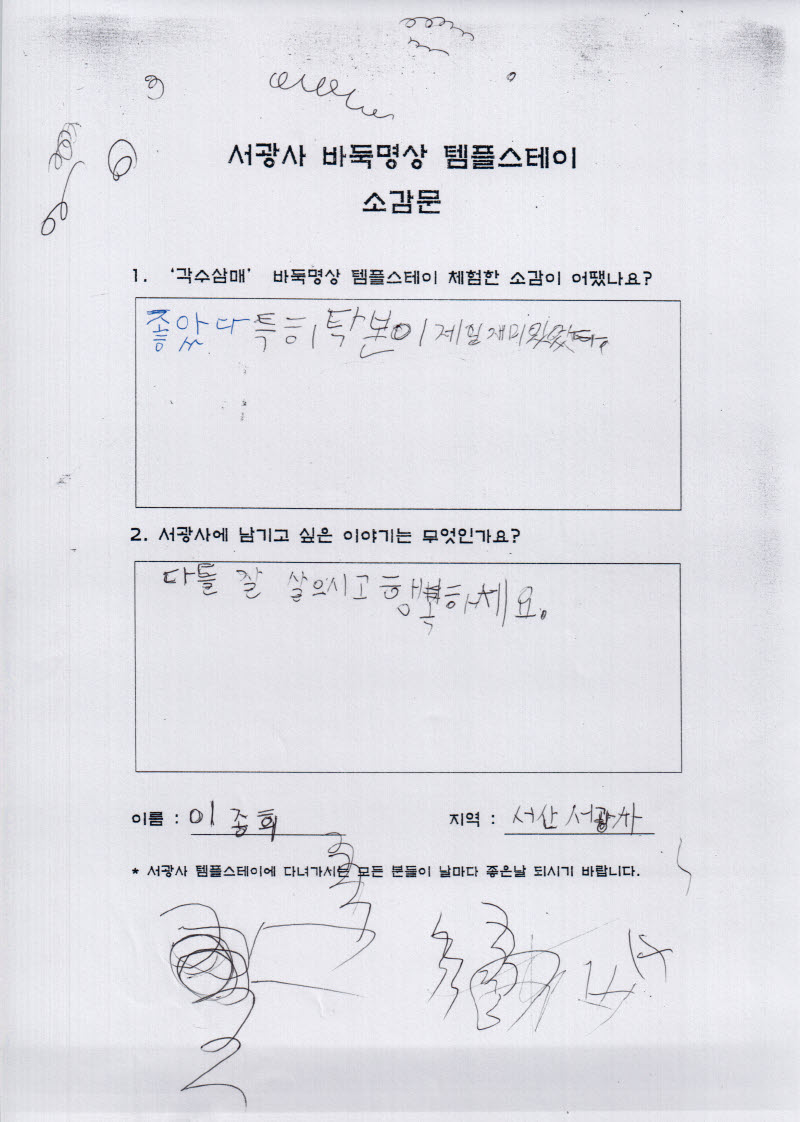 서광사 바둑명상 템플스테이
소감문
1. ‘각수삼매’ 바둑명상 템플스테이 체험한 소감이 어땠나요?
좋았다 특히 탁본이 제일 재미있었다.
2. 서광사에 남기고 싶은 이야기는 무엇인가요?
다들 잘 살으시고 행복하세요.
이름 : 이종희 지역 : 서산 서광사
* 서광사 템플스테이에 다녀가시는 모든 분들이 날마다 좋은날 되시기 바랍니다.